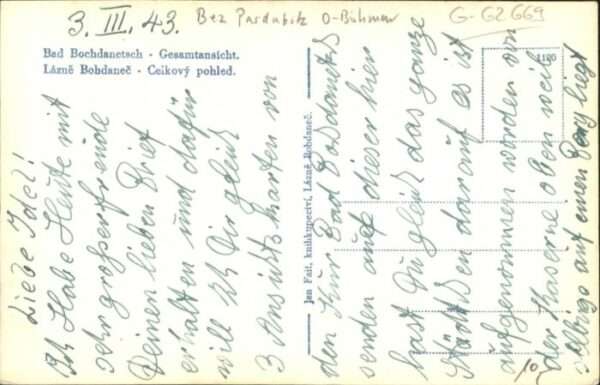 3. III. 43.
Bez Pardubitz O-Böhmen
G-G2669
Bad Bochdanetsch - Gesamtansicht.
Lázně Bohdaneč - Celkový pohled.
Liebe Idel!
Ich Habe Heute mit
sehr grosser freude
Deinen lieben Brief
erhalten und dafür
will ich Dir gleich
3 Ansichtskarten von
Jan Fait, knihkupectví, Lázně Bohdaneč.
den Kur Bad Bohdanetsch
senden auf dieser hier
hast Du gleich das ganze
Städtchen darauf es ist
aufgenommen worden von
der Kaserne oben weil
selbige auf einen Berg liegt
10,